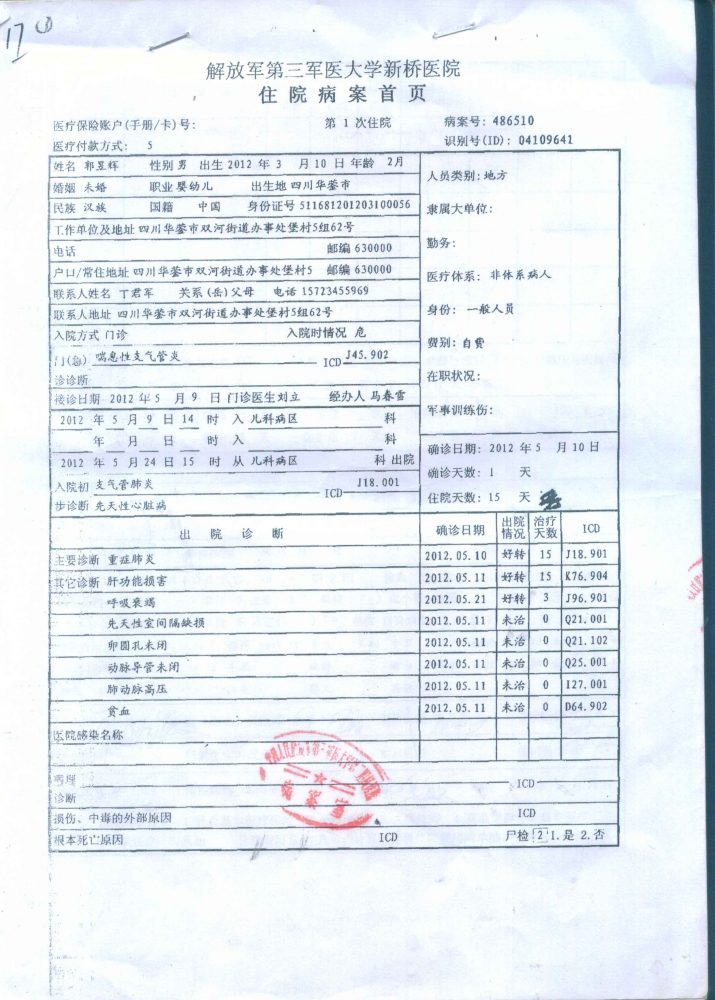 17 ①
解放军第三军医大学新桥医院
住院病案首页
医疗保险账户(手册/卡)号: 第 1 次住院 病案号: 486510
医疗付款方式: 5 识别号(ID): 04109641
姓名 郭昱辉 性别 男 出生 2012 年 3 月 10 日 年龄 2月
婚姻 未婚 职业 婴幼儿 出生地 四川华蓥市
民族 汉族 国籍 中国 身份证号 511681201203100056
工作单位及地址 四川华蓥市双河街道办事处堡村5组62号
电话 邮编 630000
户口/常住地址 四川华蓥市双河街道办事处堡村5 邮编 630000
联系人姓名 丁君军 关系(岳)父母 电话 15723455969
联系人地址 四川华蓥市双河街道办事处堡村5组62号
入院方式 门诊 入院时情况 危
门(急) 喘息性支气管炎 ICD J45.902
诊诊断
接诊日期 2012 年 5 月 9 日 门诊医生 刘立 经办人 马春雷
2012 年 5 月 9 日 14 时 入 儿科病区 科
年 月 日 时 入 科
2012 年 5 月 24 日 15 时 从 儿科病区 科 出院
入院初 支气管肺炎 ICD J18.001
步诊断 先天性心脏病
人员类别: 地方
隶属大单位:
勤务:
医疗体系: 非体系病人
身份: 一般人员
费别: 自费
在职状况:
军事训练伤:
确诊日期: 2012 年 5 月 10 日
确诊天数: 1 天
住院天数: 15 天
出 院 诊 断 确诊日期 出院情况 治疗天数 ICD
主要诊断 重症肺炎 2012.05.10 好转 15 J18.901
其它诊断 肝功能损害 2012.05.11 好转 15 K76.904
呼吸衰竭 2012.05.21 好转 3 J96.901
先天性室间隔缺损 2012.05.11 未治 0 Q21.001
卵圆孔未闭 2012.05.11 未治 0 Q21.102
动脉导管未闭 2012.05.11 未治 0 Q25.001
肺动脉高压 2012.05.11 未治 0 I27.001
贫血 2012.05.11 未治 0 D64.902
医院感染名称
病理 ICD
诊断
损伤、中毒的外部原因 ICD
根本死亡原因 ICD 尸检 2 1.是 2.否
病案室